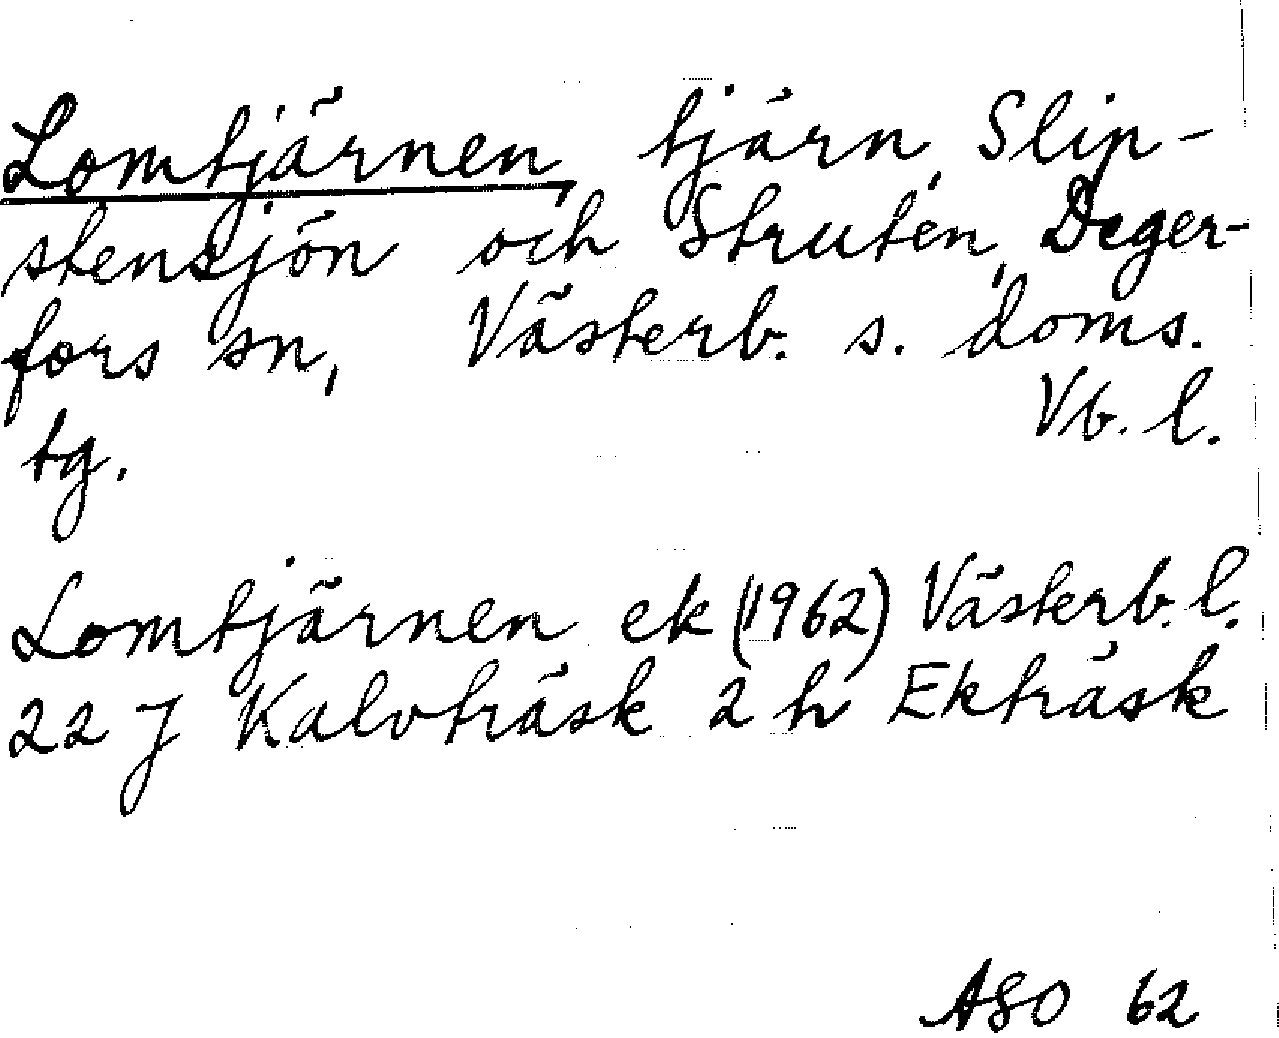 Lomtjärnen, tjärn, Slip-
stensjön och Struten, Deger-
fors sn, Västerb. s. doms.
tg. Vb. l.
Lomtjärnen ek (1962) Västerb. l.
22 J Kalvträsk 2 h Ekträsk
ASO 62